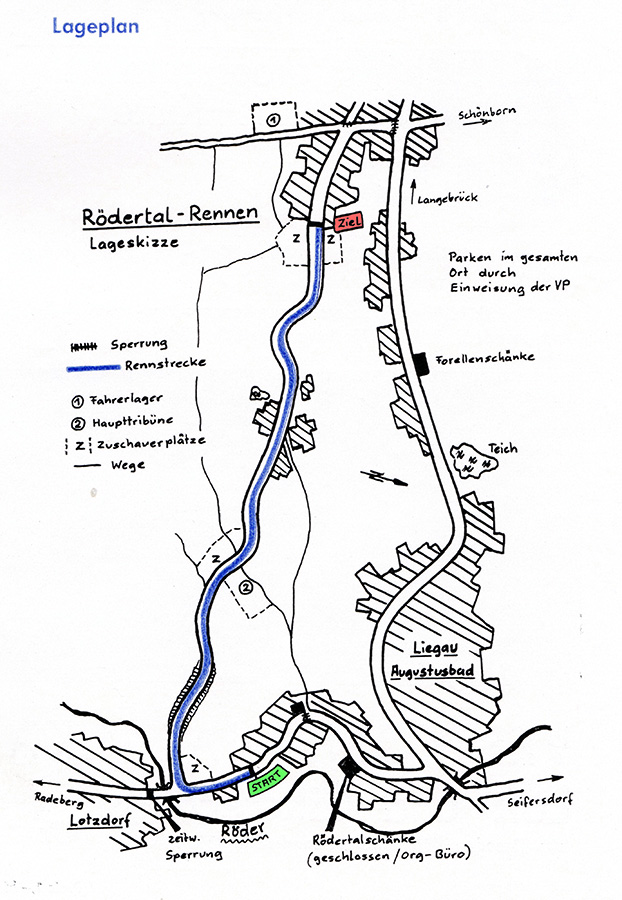 Lageplan
1
Schönborn
Langebrück
Rödertal-Rennen
Lageskizze
Ziel
Z
Z
Parken im gesamten
Ort durch
Einweisung der VP
Sperrung
Rennstrecke
1 Fahrerlager
2 Haupttribüne
Z Zuschauerplätze
Wege
Forellenschänke
Teich
Z
2
Liegau
Augustusbad
Z
START
Radeberg
Lotzdorf
zeitw.
Sperrung
Röder
Rödertalschänke
(geschlossen/Org-Büro)
Seifersdorf